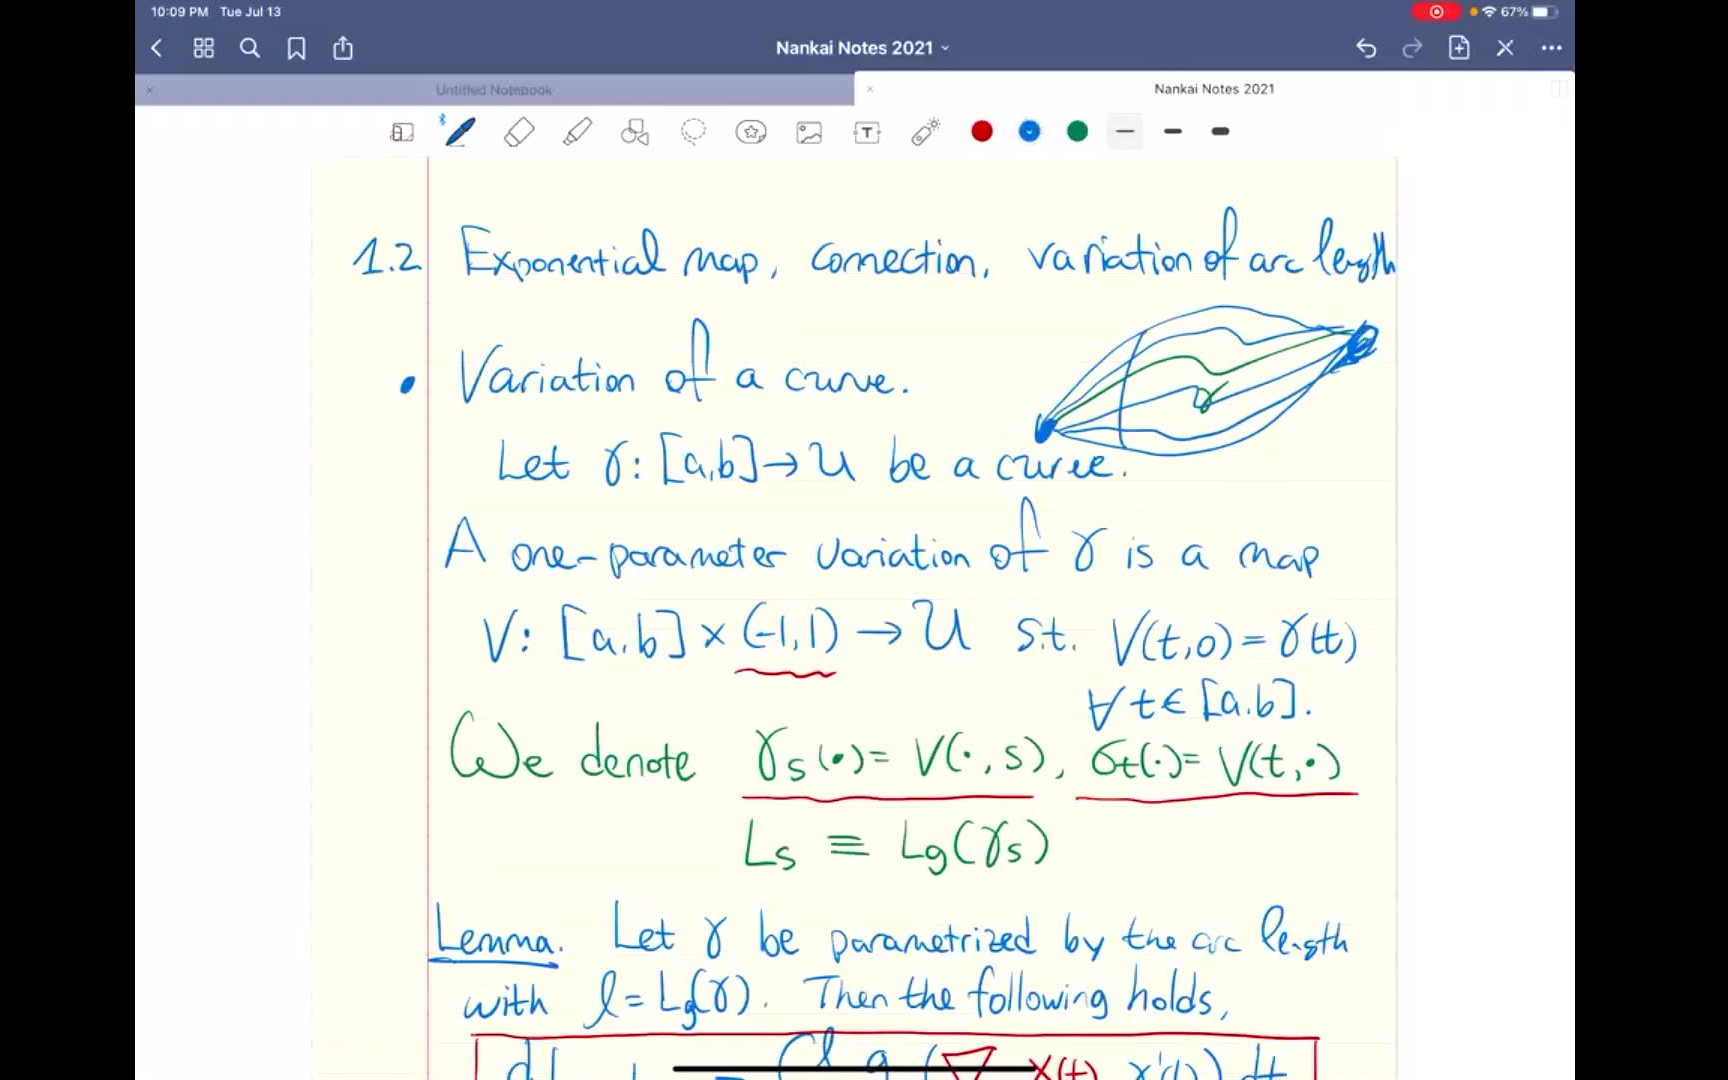 10:09 PM Tue Jul 13
67%
Nankai Notes 2021
Untitled Notebook
Nankai Notes 2021
1.2 Exponential map, connection, variation of arc length
• Variation of a curve.
γ
Let γ: [a,b]→U be a curve.
A one-parameter variation of γ is a map
V: [a,b] × (-1,1) → U s.t. V(t,0) = γ(t)
∀ t ∈ [a,b].
We denote γs(·) = V(·,s), σt(·) = V(t,·)
Ls ≡ Lg(γs)
Lemma. Let γ be parametrized by the arc length
with l = Lg(γ). Then the following holds,